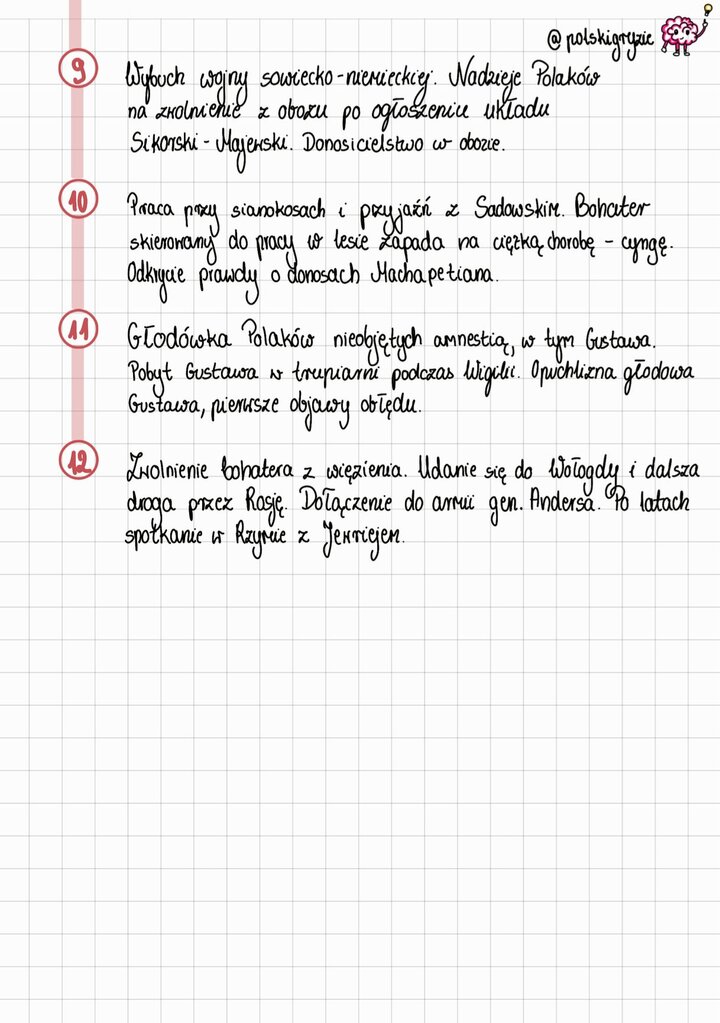 @polskigryzie
9
Wybuch wojny sowiecko-niemieckiej. Nadzieje Polaków
na zwolnienie z obozu po ogłoszeniu układu
Sikorski - Majewski. Donosicielstwo w obozie.
10
Praca przy sianokosach i przyjaźń z Sadowskim. Bohater
skierowany do pracy w lesie zapada na ciężką chorobę - cyngę.
Odkrycie prawdy o donosach Machapetiana.
11
Głodówka Polaków nieobjętych amnestią, w tym Gustawa.
Pobyt Gustawa w trupiarni podczas Wigilii. Opuchlizna głodowa
Gustawa, pierwsze objawy obłędu.
12
Zwolnienie bohatera z więzienia. Udanie się do Wołogdy i dalsza
droga przez Rosję. Dołączenie do armii gen. Andersa. Po latach
spotkanie w Rzymie z Jewriejem.